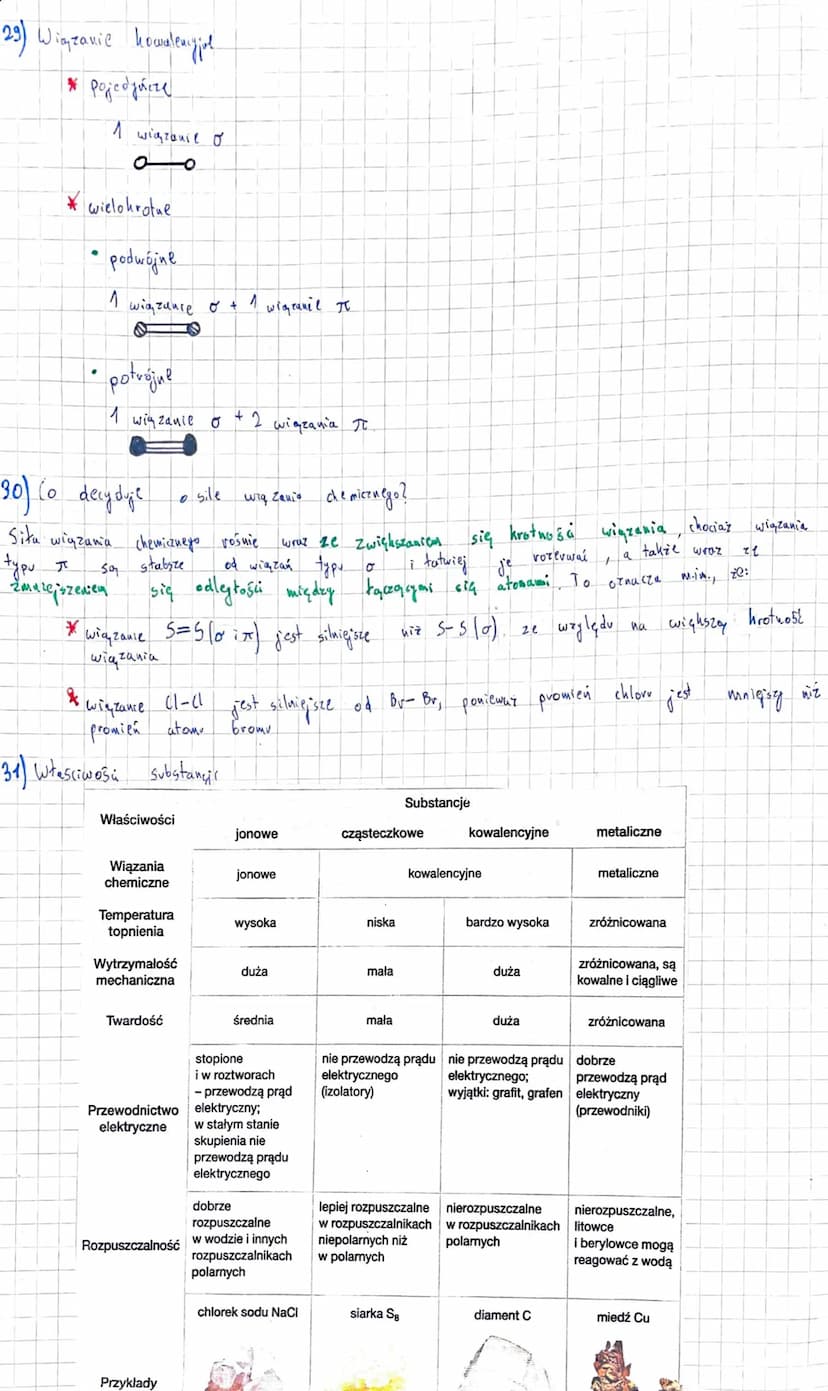 29) Wiązanie kowalencyjne
* pojedyńcze
1 wiązanie σ
* wielokrotne
• podwójne
1 wiązanie σ + 1 wiązanie π
• potrójne
1 wiązanie σ + 2 wiązania π
30) Co decyduje o sile wiązania chemicznego?
Siła wiązania chemicznego rośnie wraz ze zwiększaniem się krotności wiązania, chociaż wiązania
typu π są słabsze od wiązań typu σ i łatwiej je rozerwać, a także wraz ze
zmniejszeniem się odległości między łączącymi się atomami. To oznacza m.in., że:
* wiązanie S=S (σ i π) jest silniejsze niż S-S (σ) ze względu na większą krotność
wiązania
* wiązanie Cl-Cl jest silniejsze od Br-Br, ponieważ promień chloru jest mniejszy niż
promień atomu bromu
31) Właściwości substancji
Właściwości
Substancje
jonowe cząsteczkowe kowalencyjne metaliczne
Wiązania
chemiczne
jonowe kowalencyjne metaliczne
Temperatura
topnienia
wysoka niska bardzo wysoka zróżnicowana
Wytrzymałość
mechaniczna
duża mała duża
zróżnicowana, są
kowalne i ciągliwe
Twardość średnia mała duża zróżnicowana
Przewodnictwo
elektryczne
stopione
i w roztworach
– przewodzą prąd
elektryczny;
w stałym stanie
skupienia nie
przewodzą prądu
elektrycznego
nie przewodzą prądu
elektrycznego
(izolatory)
nie przewodzą prądu
elektrycznego;
wyjątki: grafit, grafen
dobrze
przewodzą prąd
elektryczny
(przewodniki)
Rozpuszczalność
dobrze
rozpuszczalne
w wodzie i innych
rozpuszczalnikach
polarnych
lepiej rozpuszczalne
w rozpuszczalnikach
niepolarnych niż
w polarnych
nierozpuszczalne
w rozpuszczalnikach
polarnych
nierozpuszczalne,
litowce
i berylowce mogą
reagować z wodą
Przykłady
chlorek sodu NaCl
siarka S₈
diament C
miedź Cu